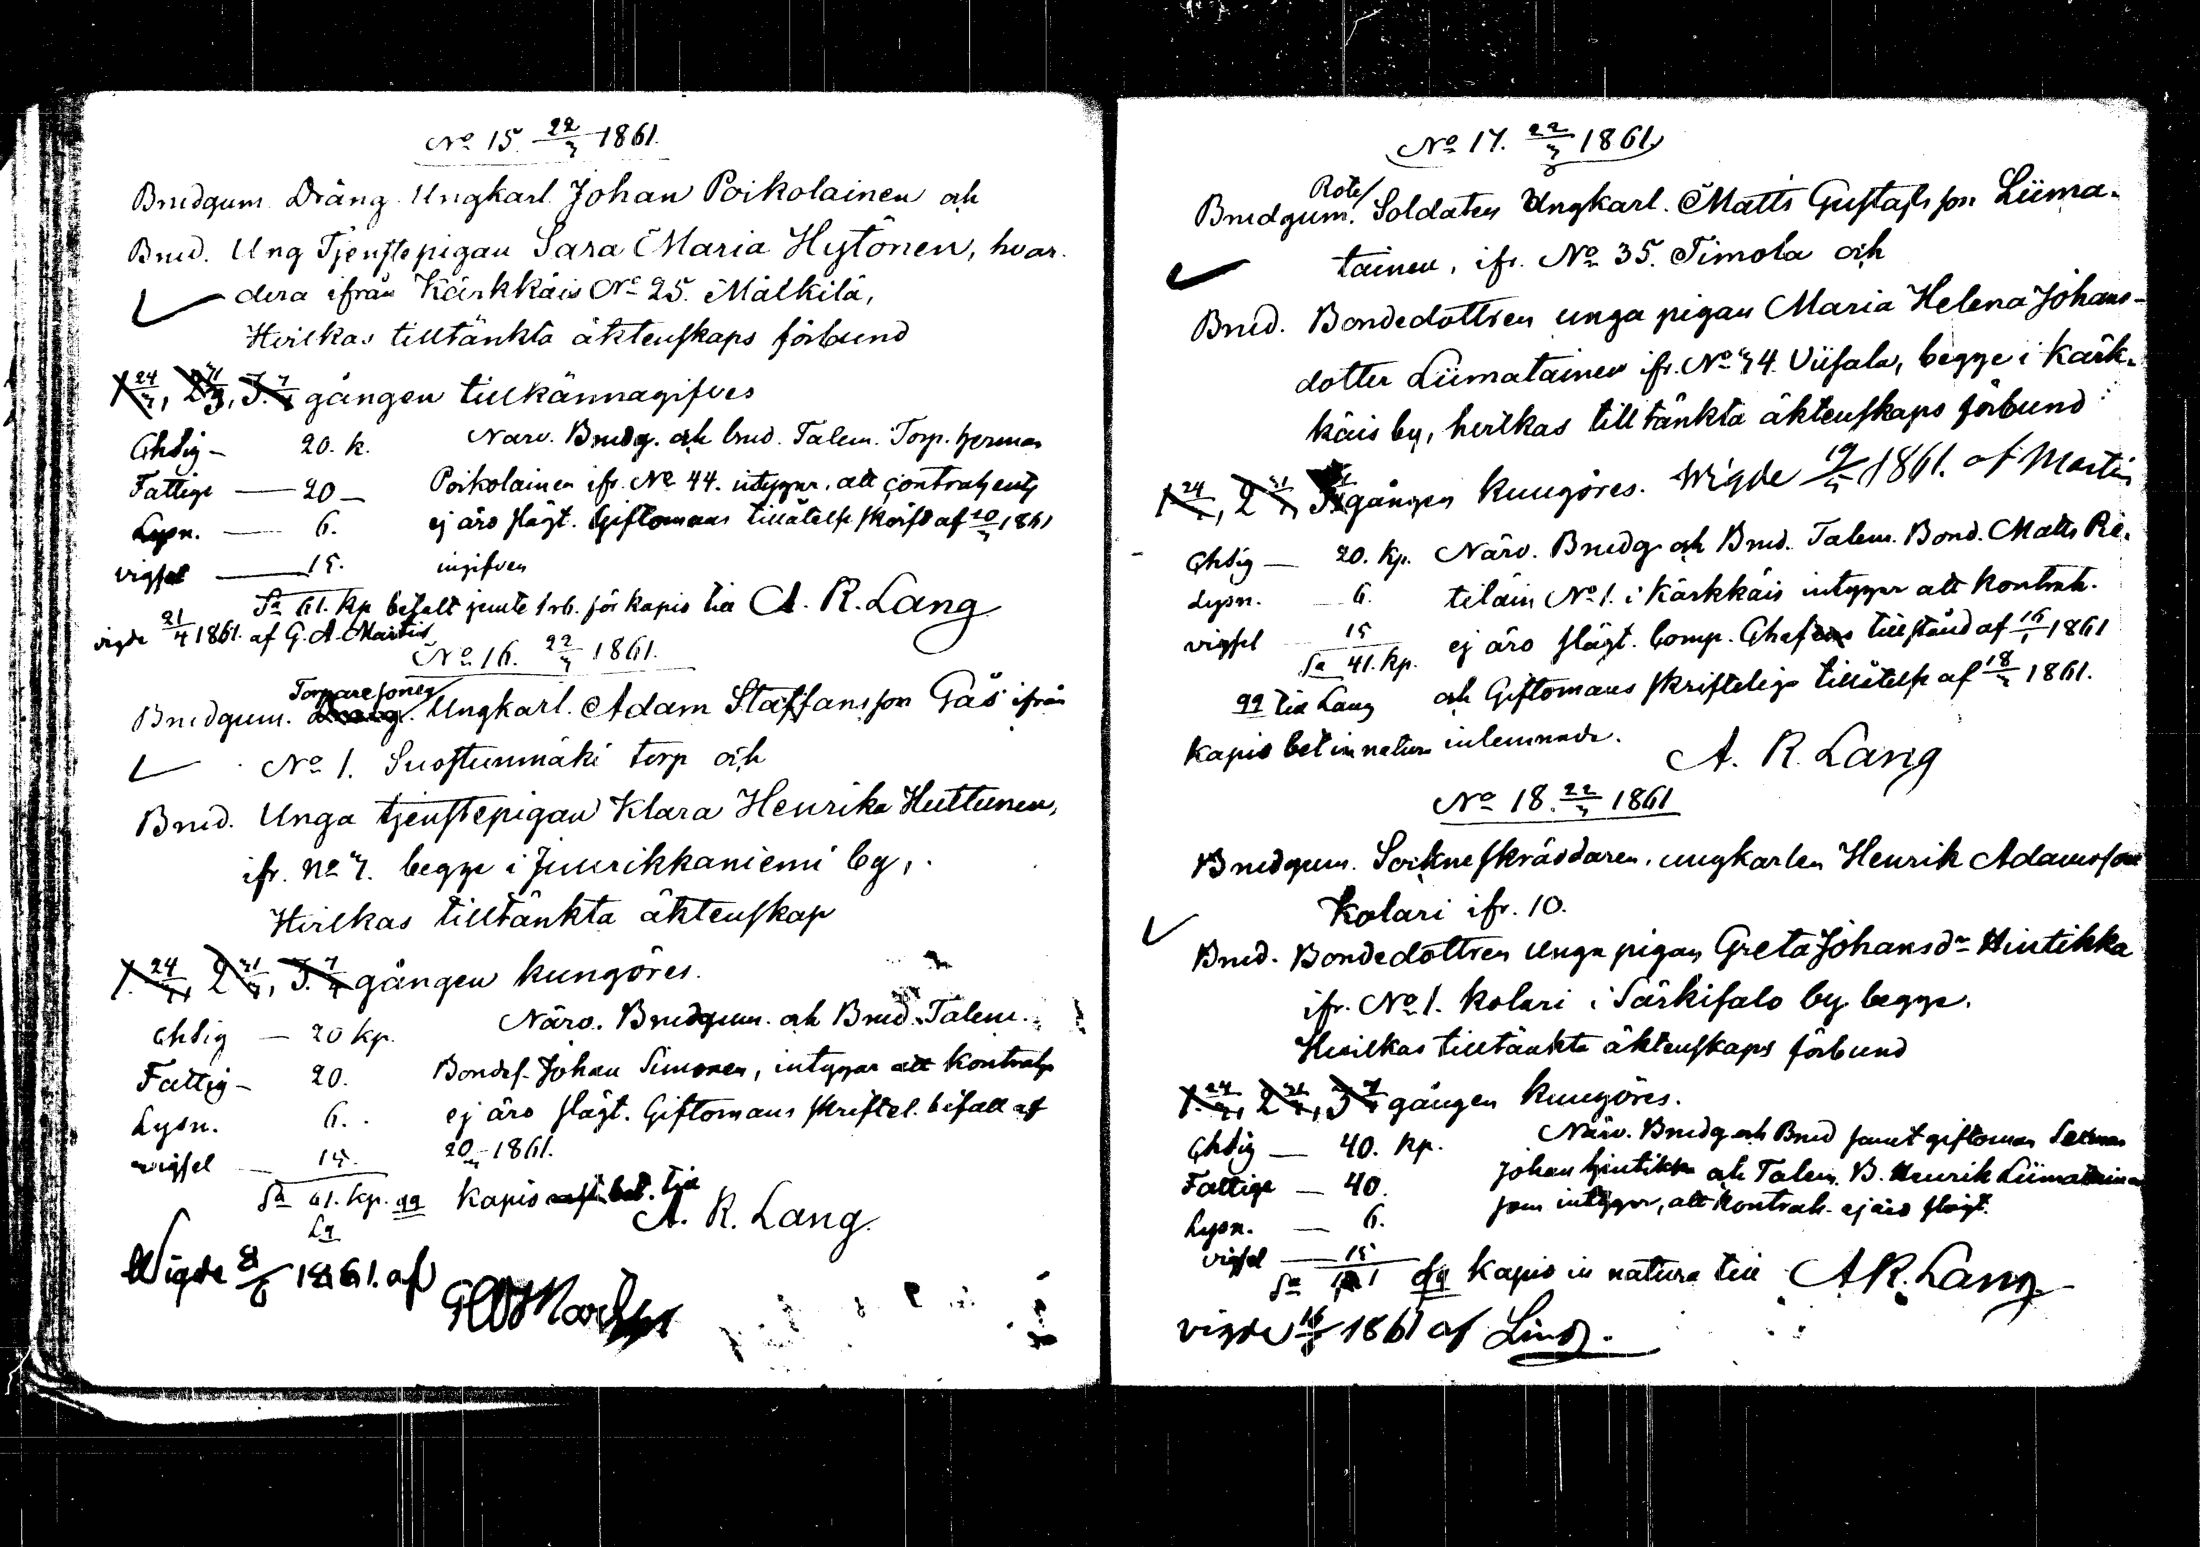 No 15. 22/3 1861.
Brudgum. Dräng. Ungkarl Johan Poikolainen och
Brud. Ung Tjenstepigan Sara Maria Hytönen, hvar-
dera ifrån Kärkkäis No 25. Mälkilä,
Hvilkas tilltänkta äktenskaps förbund
1. 24/3, 2 31/3, 3. 7/4 gången tillkännagifves
Ghdig — 20. k. Närv. Brudg. och brud. Talem. Torp. Herman
Fattige — 20 — Poikolainen ifr. No 44. intygar, att contrahenty
Lysn. — 6. ej äro slägt. Giftomans tillåtelse skrift af 20/3 1861
vigsel — 15. ingifven
Sa 61. kp betalt jemte 1 rb. för kapis till A. R. Lang
vigde 21/4 1861. af G. A. Martin
No 16. 22/3 1861.
Torpare sonen
Brudgum. Dräng. Ungkarl. Adam Staffansson Gås ifrån
No 1. Suostunmäki torp och
Brud. Unga tjenstepigan Klara Henrika Huttunen,
ifr. No 7. begge i Juurikkaniemi by,
Hvilkas tilltänkta äktenskap
1. 24/3, 2 31/3, 3. 7/4 gången kungöres.
Ghdig — 20 kp. Närv. Brudgum. och Brud. Talem.
Fattig — 20. Bondes. Johan Simonen, intygar att kontrah
Lysn. 6. ej äro slägt. Giftomans skriftel. bifall af
vigsel — 15. 20/3 1861.
Sa 61. kp. qq kapis bet. till
Lg A. R. Lang.
Wigde 1861. af
No 17. 22/3 1861
Rote
Brudgum. Soldaten Ungkarl. Matts Gustafsson Liima-
tainen, ifr. No 35. Timola och
Brud. Bondedottren unga pigan Maria Helena Johans-
dotter Liimatainen ifr. No 74. Viisala, begge i Kärk-
käis by, hvilkas tilltänkta äktenskaps förbund
1. 24/3, 2 31/3 gången kungöres. Wigde 1861. af Martin
Ghdig — 20. kp. Närv. Brudg. och Brud. Talem. Bond. Matts Rè-
Lysn. — 6. teläin No 1. i Kärkkäis intygar att kontrah.
vigsel 15 ej äro slägt. Comp. tillstånd af 16/1 1861
Sa 41. kp. och Giftomans skriftelige tillåtelse af 18/3 1861.
qq till Lang
kapis bet in natura inlemnade. A. R. Lang
No 18. 22/3 1861
Brudgum. Sockneskräddaren, ungkarlen Henrik Adamsson
Kolari ifr. 10.
Brud. Bondedottren unga pigan Greta Johansdr Hintikka
ifr. No 1. Kolari i Särkisalo by begge.
Hvilkas tilltänkta äktenskaps förbund
1. 24/3, 2 31/3, 3 7/4 gången kungöres.
Ghdig — 40. kp. Närv. Brudg. och Brud samt giftoman
Fattige — 40. Johan Hintikka och Talem. B. Henrik Liimatainen
Lysn. — 6. som intygar, att kontrah. ej äro slägt.
vigsel — 15
Sa 101 qq kapis in natura till A R. Lang
vigde 1861 af Lind.